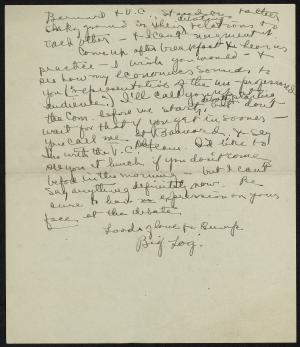 Barnard & V.C. stand on rather
shaky ground in their relations to
each other - & I can't augment it
Come up after breakfast & hear us
practice - I wish you would - &
see how my economics sounds to
you (representation of the un-professional
audience.) I'll call you up at
the Com. before we start but don't
wait for that if you get in sooner -
You call me at Barnard, & say
I'm with the V.C. team. I'd like to
see you at lunch if you don't come
before in the morning - but I can't
say anything definite now. Be
sure to have no expression on your
face at the debate.
Loads of love &
Big Log.